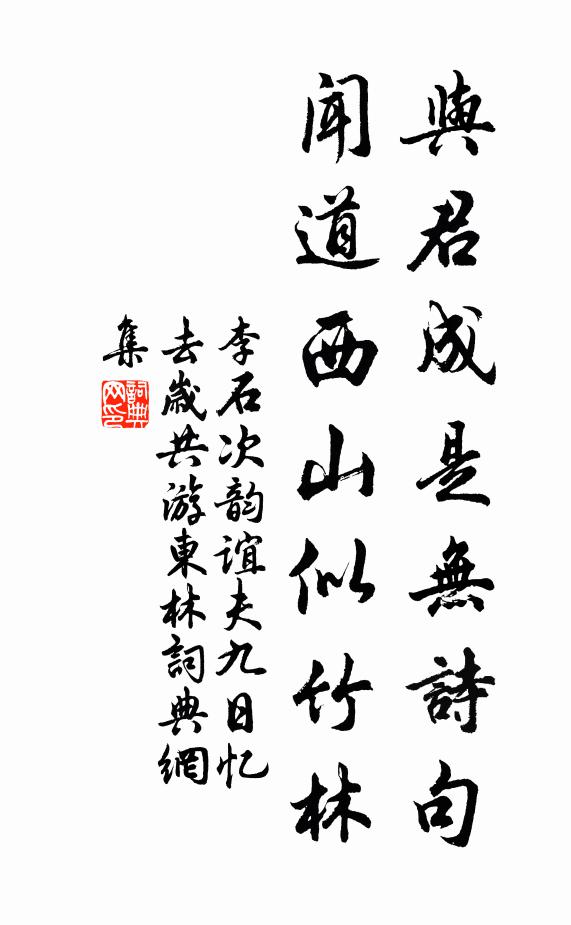 與君成是無詩句
闻道西山似竹林
李石次韵谊夫九日忆
去歲共游東林詞典網
集
詞典
网印